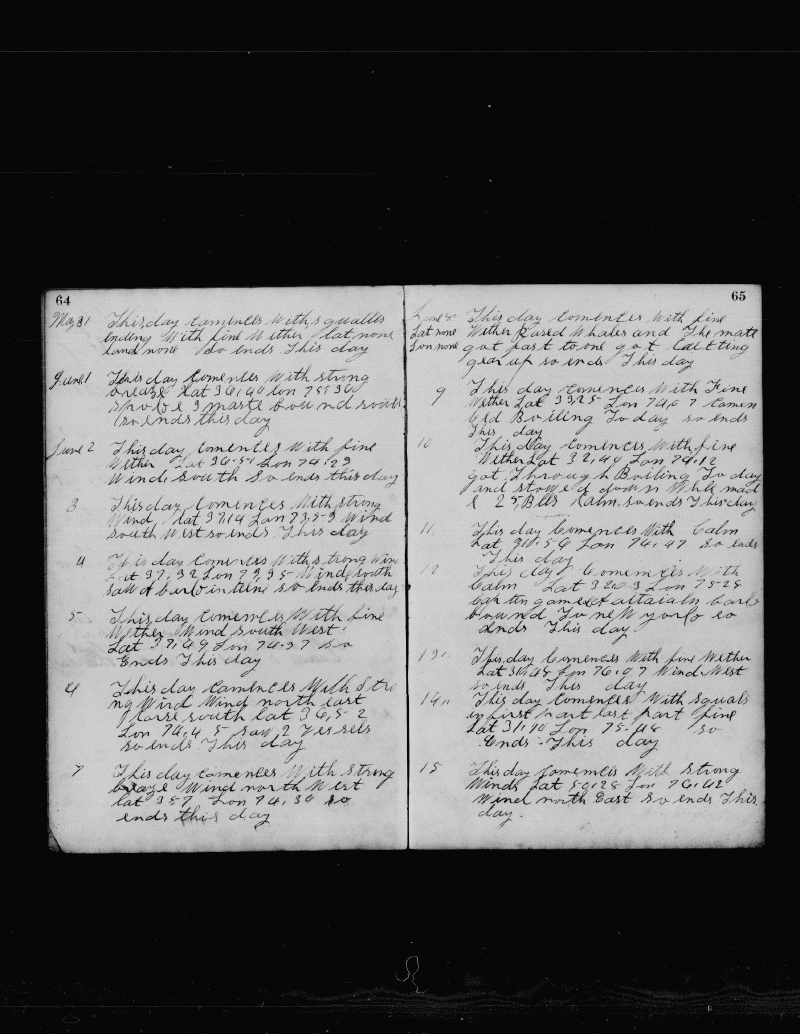 64
May 31 This day Comences With squalles
ending With fine Wether lat none
land none So ends This day
June 1 This day Comences With strong
breaze Lat 36,40 lon 75,30
3 maste bound south
so ends this day
June 2 This day Comences With fine
Wether Lat 36.51 Lon 74.29
Wind South So ends this day
3 This day Comences With strong
Wind lat 37 14 Lon 73,53 Wind
South West so ends This day
4 This day Comences With strong Wind
Lat 37,32 Lon 73,35 Wind south
Saw a barkintine so ends this day
5 This day Comences With fine
Wether Wind South West
Lat 37,49 Lon 74.37 So
Ends This day
This day Comences With Stro
ng Wind Wind north east
Corse south lat 36,52
Lon 74,45 saw 2 Vessels
so ends This day
7 This day Comences With strong
breaze Wind north West
lat 357 Lon 74,30 so
ends this day
65
June 8 This day Comences With fine
Lat none Wether Rased Whales and The mate
Lon none got fast to one got Cutting
gear up so ends This day
9 This day Comences With Fine
Wether Lat 33,25 Lon 74,07 Comen
Boiling To day so ends
This day
10 This day Comences With fine
Wether Lat 32,40 Lon 74,12
got Through Boiling To day
and stowed down Whle mad
e 25 Bbls so ends This day
11 This day Comences With Calm
Lat Lon 74,47 so ends
This day
12 This day Comences With
Calm Lat Lon 75-25
bark
bound To neW york so
ends This day
13 This day Comences With fine Wether
Lat Lon 76,07 Wind West
so ends This day
14 This day Comences With squals
in first part last part fine
Lat 31,10 Lon 75-48 so
Ends This day
15 This day Comences With strong
Winds Lat Lon 76,42
Wind north East so ends This
day.